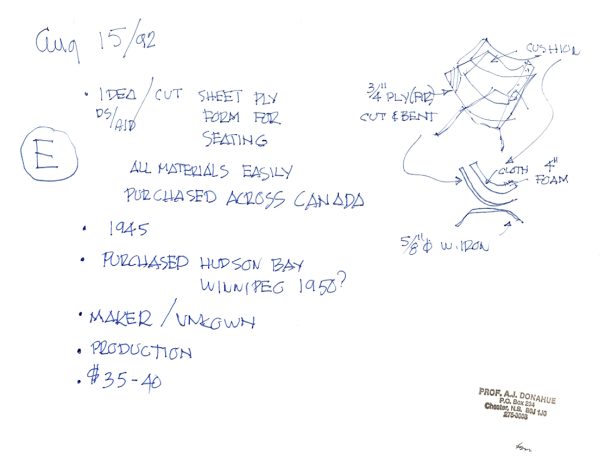 Aug 15/92
• IDEA / CUT SHEET PLY
DS/AID FORM FOR
SEATING
E
ALL MATERIALS EASILY
PURCHASED ACROSS CANADA
• 1945
• PURCHASED HUDSON BAY
WINNIPEG 1950?
• MAKER / UNKOWN
• PRODUCTION
• $35-40
CUSHION
3/4" PLY (FIR)
CUT & BENT
CLOTH 4"
FOAM
5/8"φ W. IRON
PROF. A.J. DONAHUE
P.O. Box 234
Chester, N.S. B0J 1J0